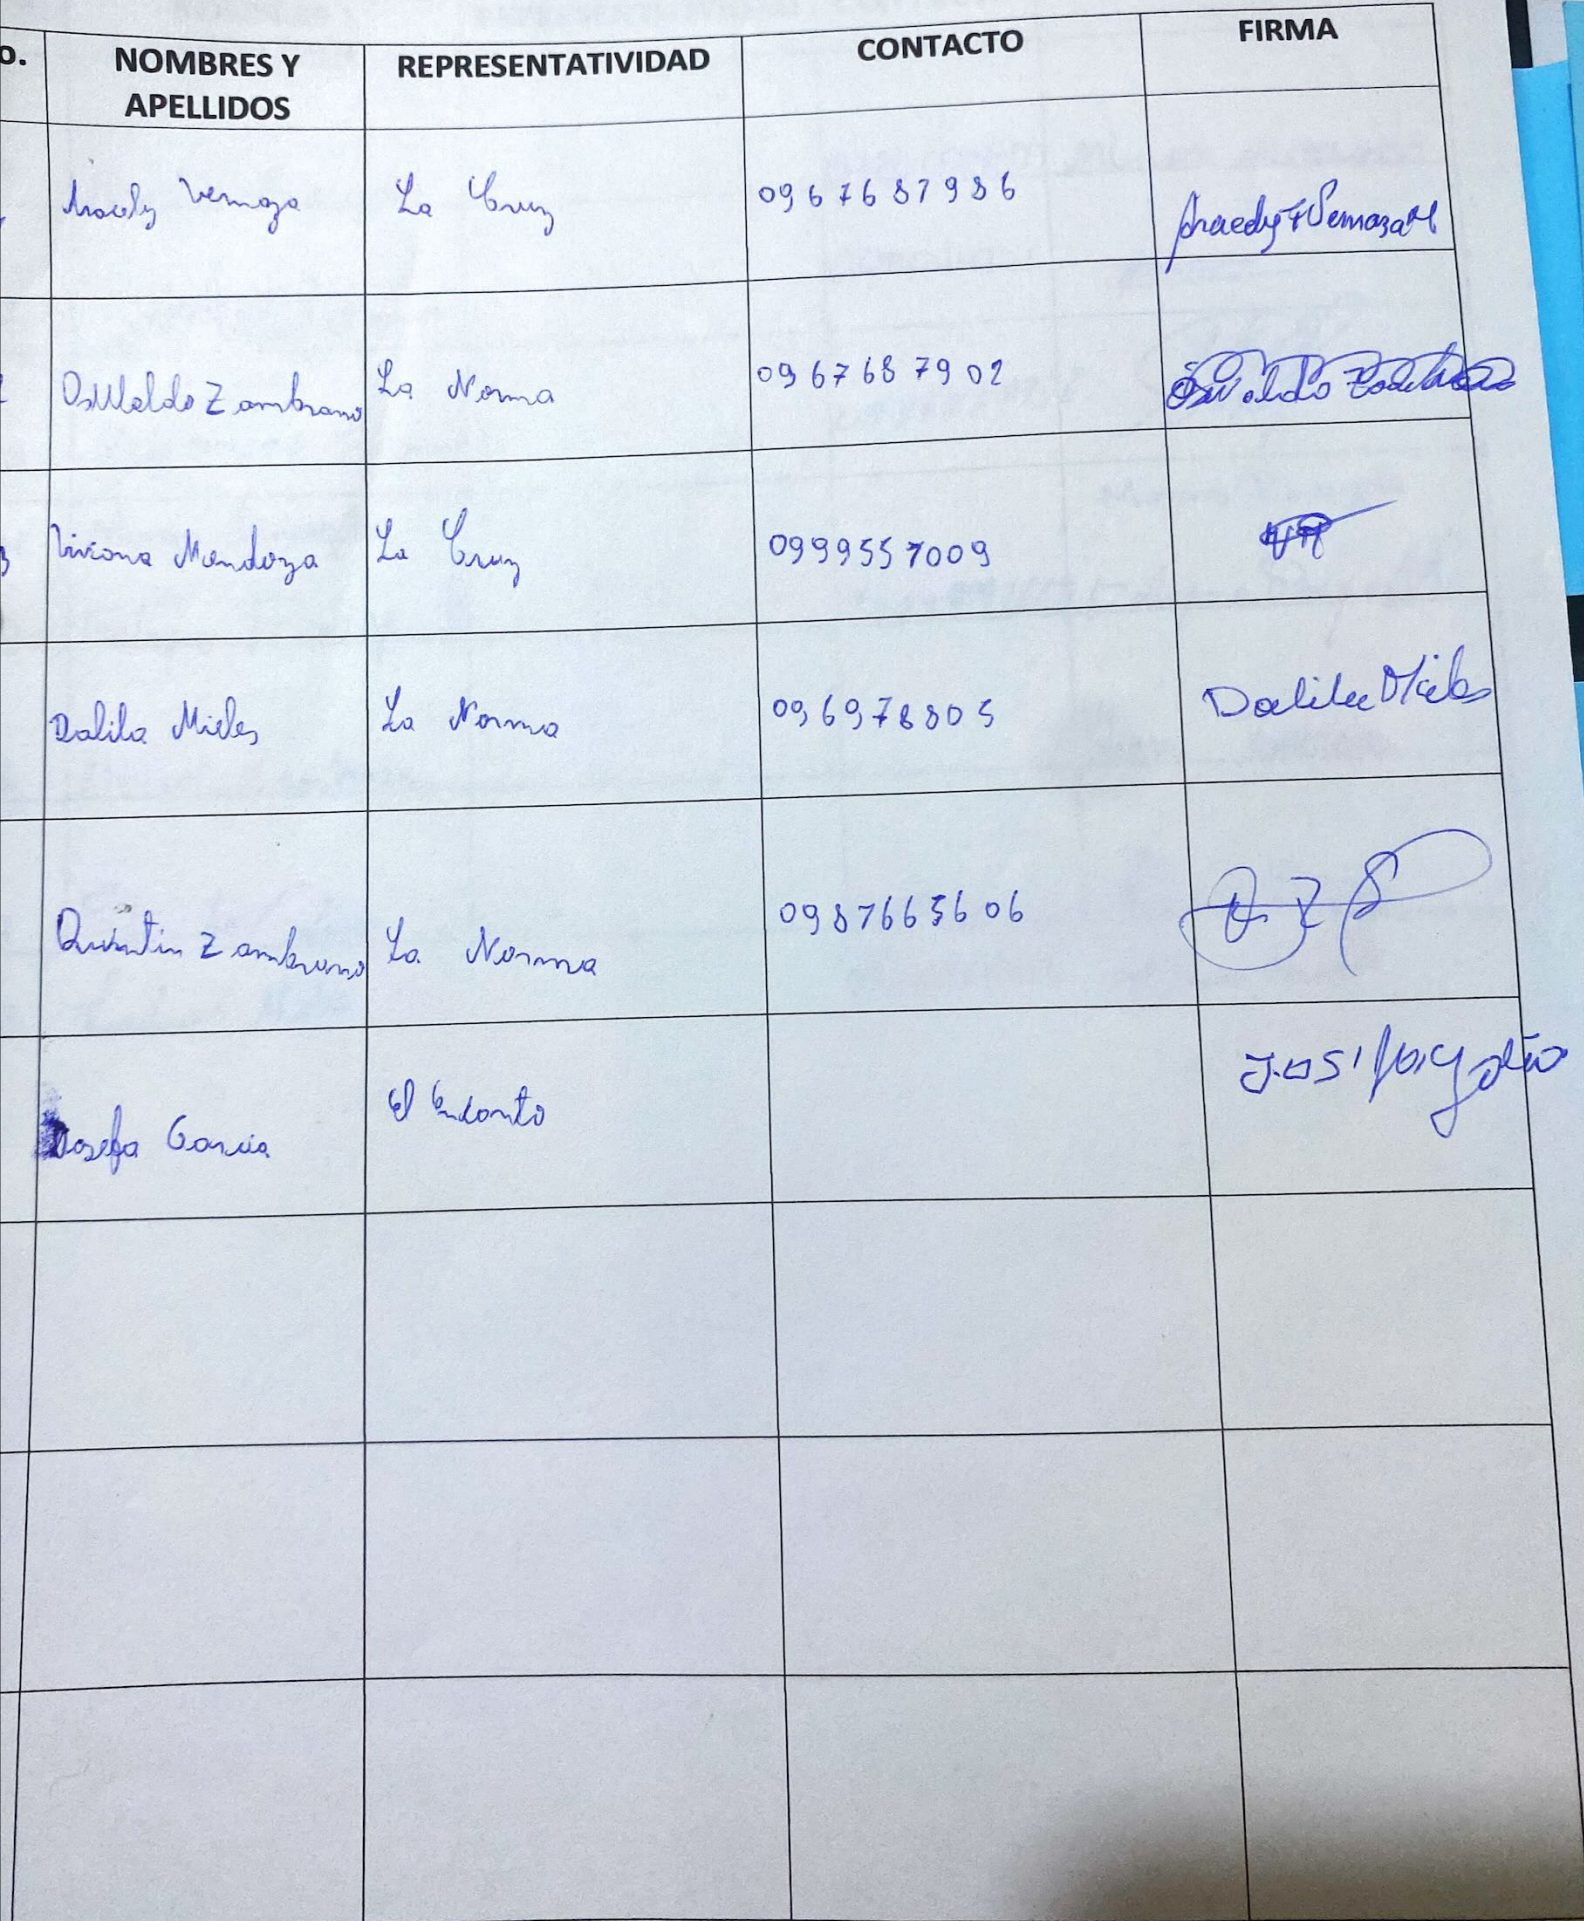 o. NOMBRES Y APELLIDOS REPRESENTATIVIDAD CONTACTO FIRMA
Aracely Vernaza La Cruz 0967687986
Oswaldo Zambrano La Norma 0967687902
3 Viviana Mendoza La Cruz 0999557009
Dalila Mieles La Norma 096978805 Dalila Mieles
Quintin Zambrano La Norma 0987665606
Josefa Garcia El Encanto